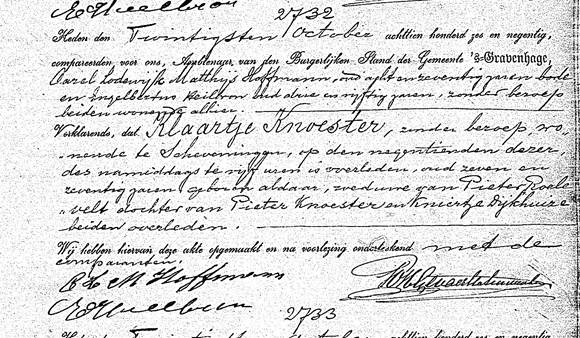 2732
Heden den Twintigsten October achttien honderd zes en negentig,
compareerden voor ons, Ambtenaar van den Burgerlijken Stand der Gemeente 's-Gravenhage,
Carel Lodewijk Matthijs Hoffmann, oud acht en zeventig jaren, bode
en Engelbertus Heilbron oud drie en vijftig jaren, zonder beroep
beiden wonende alhier.
Verklarende, dat Klaartje Knoester, zonder beroep, wo-
nende te Scheveningen, op den negentienden dezer
des namiddags te vijf uren is overleden, oud zeven en
zeventig jaren geboren aldaar, weduwe van Pieter Roele
velt dochter van Pieter Knoester en Kniertje Dijkhuize
beiden overleden.
Wij hebben hiervan deze akte opgemaakt en na voorlezing onderteekend met de
comparanten.
C L M Hoffmann
2733
Heden den achttien honderd zes en negentig,